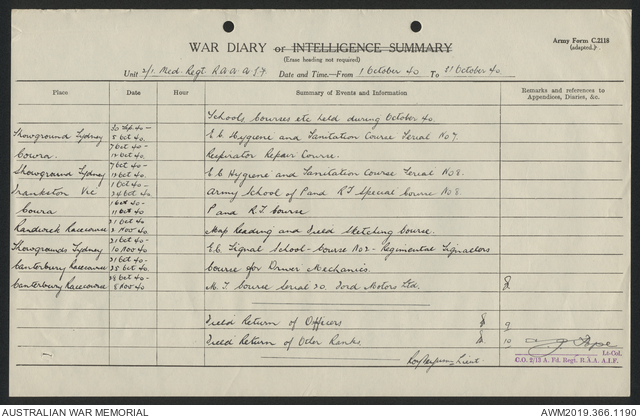 Army Form C.2118
(adapted.)
WAR DIARY or INTELLIGENCE SUMMARY
(Erase heading not required)
Unit 2/1. Med. Regt. R.A.A. A.I.F. Date and Time—From 1 October 40 To 31 October 40
Place Date Hour Summary of Events and Information Remarks and references to Appendices, Diaries, &c.
Schools Courses etc held during October 40.
Showground Sydney 30 Sep 40 - 5 Oct 40. E.C. Hygiene and Sanitation Course Serial No 7.
Cowra. 7 Oct 40 - Oct 40. Respirator Repair Course.
Showground Sydney 7 Oct 40 - Oct 40. E.C. Hygiene and Sanitation Course Serial No 8.
Frankston Vic 1 Oct 40 - 24 Oct 40. Army School of P and R.T. Special Course No 8.
Cowra Oct 40 - Oct 40 P and R.T. Course
Randwick Racecourse 21 Oct 40 - 2 Nov 40. Map Reading and Field Sketching Course.
Showgrounds Sydney 21 Oct 40 - 10 Nov 40. E.C. Signal School - Course No 2 - Regimental Signallers
Canterbury Racecourse 21 Oct 40 - 25 Oct 40. Course for Driver Mechanics.
Canterbury Racecourse 28 Oct 40 - 8 Nov 40. M.T. Course Serial 20. Ford Motors Ltd. 8
Field Return of Officers 9
Field Return of Other Ranks 10
Lieut.
Lt-Col.
C.O. 2/13 A. Fd. Regt. R.A.A. A.I.F.
AUSTRALIAN WAR MEMORIAL AWM2019.366.1190